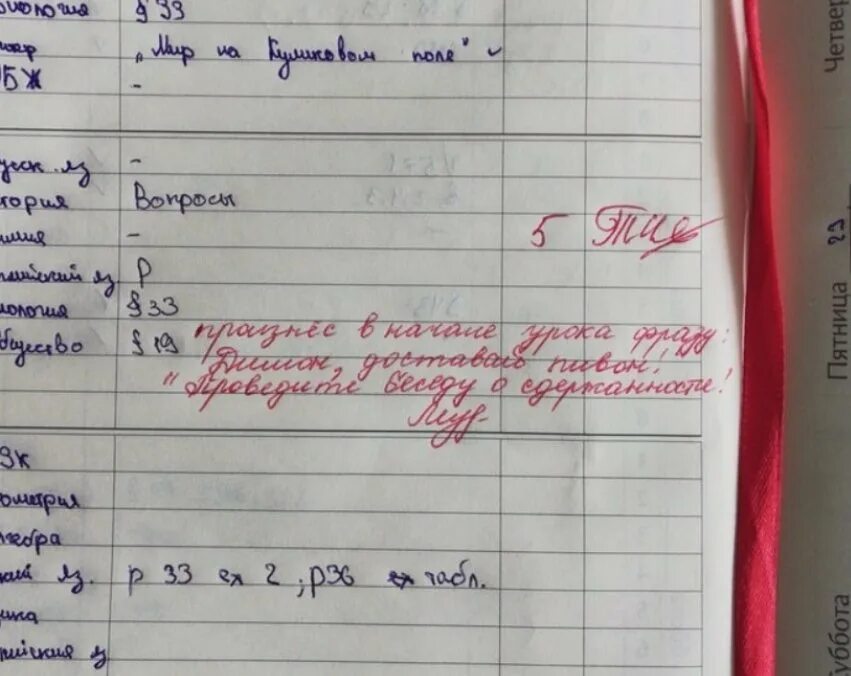 ология § 33
"Мир на Куликовом поле"
ОБЖ -
русск. яз -
тория Вопросы
имия - 5
лийский яз Р
иология § 33
общество § 19
произнёс в начале урока фразу:
Димон, доставай пивон!
"Проведите беседу о сдержанности!
ометрия
лгебра
яз. р 33 ex 2; р36 табл.
лийский я
Четвер
Пятница 29
Суббота